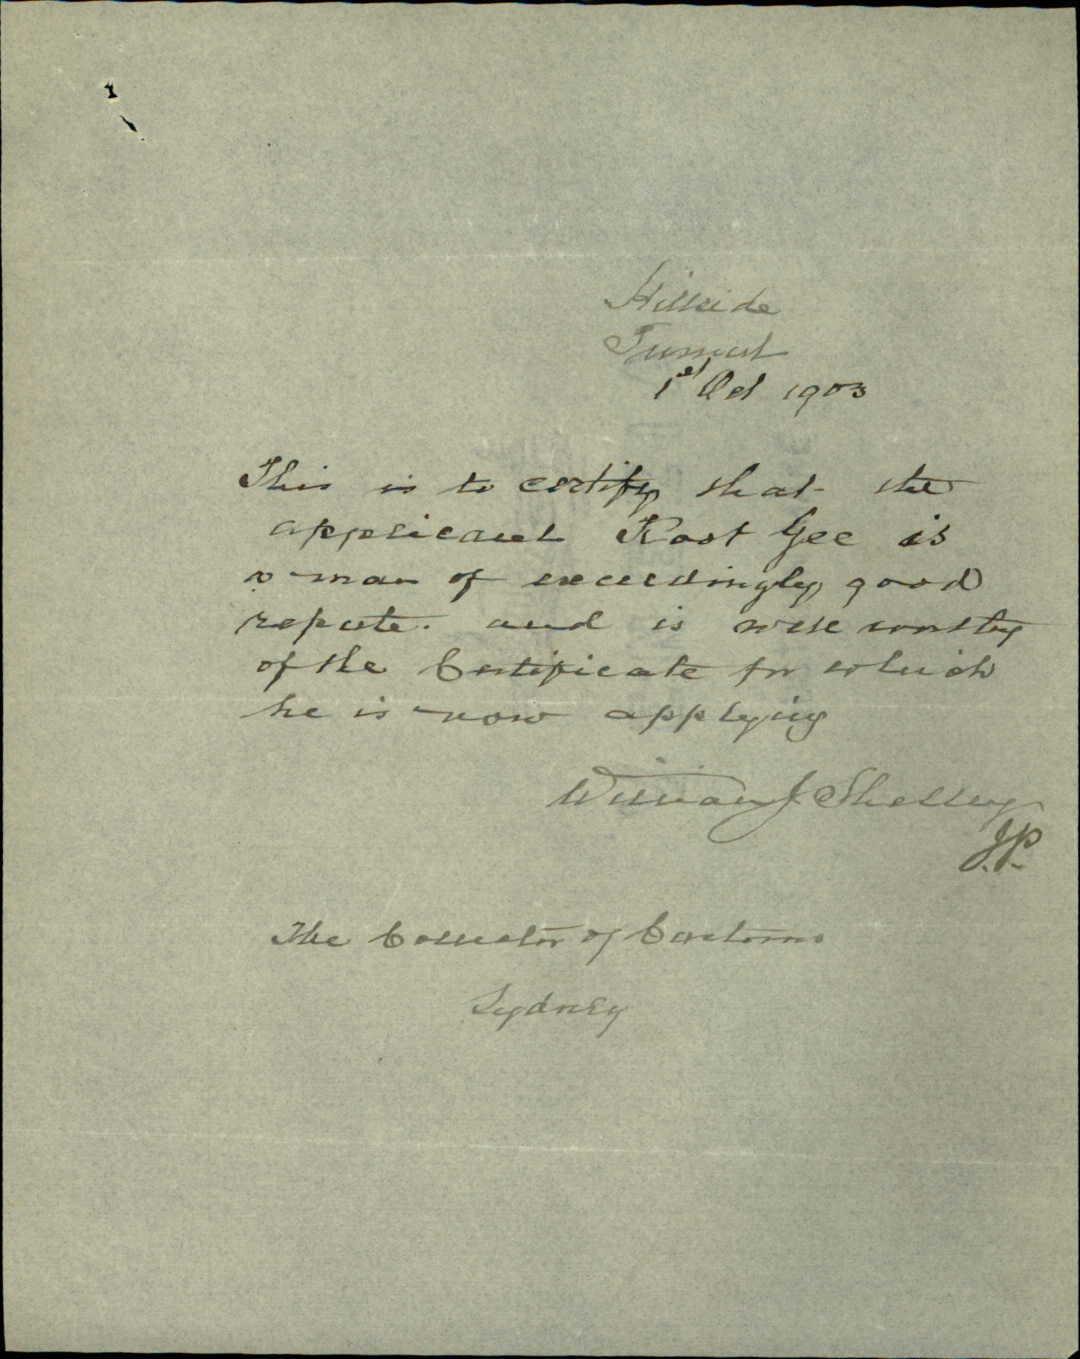 Hillside
Tumut
1st Oct 1903
This is to certify that the
applicant Kost Gee is
a man of exceedingly good
repute. and is well worthy
of the Certificate for which
he is now applying
William J Shelley
J.P.
The Collector of Customs
Sydney